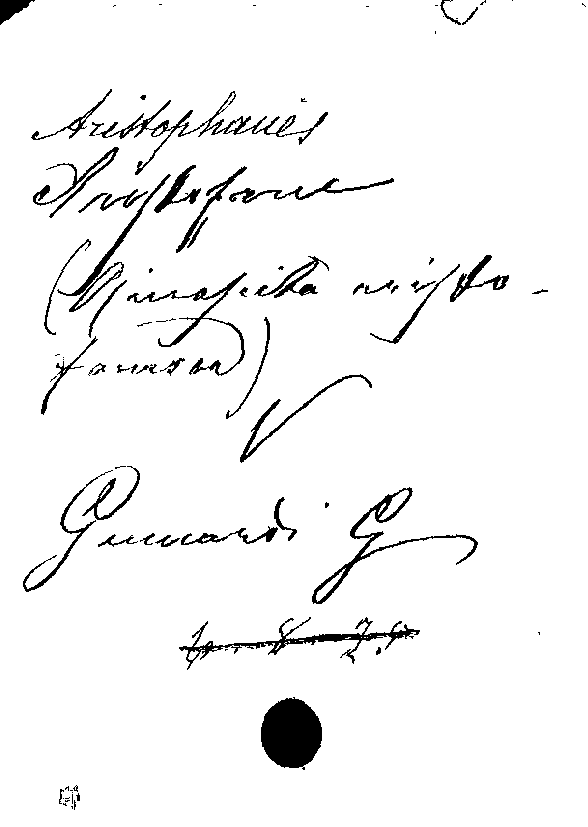 Aristophanes
Aristofane
(Ginnasita aristo-
fanesca)
V
Gennardi G